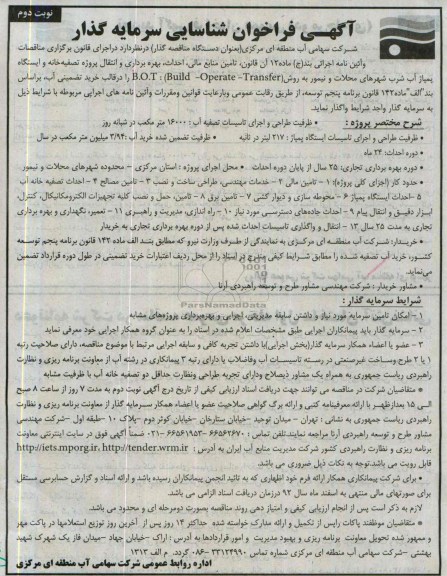 نوبت دوم
آگهــی فراخوان شناسایی سرمایه گذار
شــرکت سهامی آب منطقه ای مرکزی(بعنوان دستگاه مناقصه گذار) درنظردارد دراجرای قانون برگزاری مناقصات
وآئین نامه اجرائی بند(ج) ماده۱۲ آن قانون، تامین منابع مالی، احداث، بهره برداری و انتقال پروژه تصفیه‌خانه و ایستگاه
پمپاژ آب شرب شهرهای محلات و نیمور به روش(Build –Operate –Transfer) B.O.T : را درقالب خرید تضمینی آب، براساس
بند"الف"ماده۱۴۲ قانون برنامه پنجم توسعه، از طریق رقابت عمومی وبارعایت قوانین ومقررات وآئین نامه های اجرایی مربوطه با شرایط ذیل
به سرمایه گذار واجد شرایط واگذار نماید.
شرح مختصر پروژه :
• ظرفیت طراحی و اجرای تاسیسات تصفیه آب : ۱۶۰۰۰ متر مکعب در شبانه روز
• ظرفیت طراحی و اجرای تاسیسات ایستگاه پمپاژ : ۲۱۷ لیتر در ثانیه • ظرفیت تضمین شده خرید آب :۳/۹۴ میلیون متر مکعب در سال
• دوره احداث: ۲۴ ماه
• دوره بهره برداری تجاری: ۲۵ سال از پایان دوره احداث • محل اجرای پروژه : استان مرکزی – محدوده شهرهای محلات و نیمور
• حدود کار (اجزای کلی پروژه): ۱ – تامین مالی ۲ – خدمات مهندسی، طراحی ساخت و نصب ۳ – تامین مصالح ۴ – احداث تصفیه خانه آب
۵ –احداث ایستگاه پمپاژ ۶ – محوطه سازی و دیوار کشی ۷ – تامین برق ۸ – تامین، حمل و نصب کلیه تجهیزات الکترومکانیکال، کنترل،
ابزار دقیــق و انتقال پیام ۹ – احداث جاده‌های دسترســی مورد نیاز ۱۰ – راه اندازی، مدیریت و راهبــری ۱۱ – تعمیر، نگهداری و بهره برداری
تجاری به مدت ۲۵ سال ۱۳ – انتقال و واگذاری تاسیسات احداث شده پس از دوره بهره برداری تجاری به خریدار
• خریدار: شــرکت آب منطقــه ای مرکزی به نمایندگی از طــرف وزارت نیرو که مطابق بنــد الف ماده ۱۴۲ قانون برنامه پنجم توســعه
کشور، خرید آب تصفیه شده را مطابق شرایط کیفی مندرج در اسناد را از محل ردیف اعتبارات خرید تضمینی در طول دوره قرارداد تضمین
می‌نماید.
• مشاور خریدار : شرکت مهندسی مشاور طرح و توسعه راهبردی آرنا
شرایط سرمایه گذار :
۱ – امکان تامین سرمایه مورد نیاز و داشتن سابقه مدیریتی، اجرایی و بهره‌برداری پروژه‌های مشابه
۲ – سرمایه گذار باید پیمانکاران اجرایی طبق مشخصات اعلام شده در اسناد را به عنوان گروه همکار اجرایی خود معرفی نماید
۳ – عضو یا اعضاء همکار سرمایه گذار(بخش اجرایی)با داشتن تجربه کافی و سابقه اجرایی مرتبط با موضوع مناقصه، دارای صلاحیت رتبه
۱ یا ۲ طرح وساخت غیرصنعتی در رسته تاسیسات آب وفاضلاب یا دارای رتبه ۳ پیمانکاری در رشته آب از معاونت برنامه ریزی و نظارت
راهبردی ریاست جمهوری به همراه یک مشاور ذیصلاح ودارای تجربه طراحی ونظارت حداقل دو تصفیه خانه آب با ظرفیت مشابه
• متقاضیان شرکت در مناقصه می توانند جهت دریافت اسناد ارزیابی کیفی از تاریخ درج آگهی نوبت دوم به مدت ۷ روز از ساعت ۸ صبح
الــی ۱۵ بعدازظهــر با ارائه معرفینامه کتبی و ارائه برگ گواهی صلاحیت عضو یا اعضاء همکار ســرمایه گذار از معاونت برنامه ریزی و نظارت
راهبردی ریاست جمهوری به نشانی : تهران – میدان توحید –خیابان ستارخان –خیابان کوثر دوم –پلاک ۱۰ –طبقه اول –شرکت مهندسی
مشاور طرح و توسعه راهبردی آرنا مراجعه نمایند.تلفن تماس : ۶۶۵۶۲۶۷۰– ۶۶۵۶۱۹۵۳–۰۲۱ ضمناً آگهی فوق در سایت اینترنتی معاونت
برنامه ریزی و نظارت راهبردی کشور شرکت مدیریت منابع آب ایران به آدرس : http://iets.mporg.ir، http://tender.wrm.ir
قابل رویت می باشد.توجه به نکات ذیل ضروری می باشد.
• برای شرکت پیمانکاری همکار ارائه فرم خود اظهاری که به تائید انجمن پیمانکاران رسیده باشد و ارائه اسناد و گزارش حسابرسی مستقل
برای صورتهای مالی منتهی به اسفند ماه سال ۹۲ درزمان دریافت اسناد الزامی می باشد.
لازم به ذکر است پس از انجام ارزیابی کیفی و امتیاز دهی روند مناقصه بصورت دومرحله ای و محدود می باشد.
• متقاضیان موظفند پاکات رابس از تکمیل و ارائه مدارک خواسته شده حداکثر ۱۴ روز پس از آخرین روز توزیع استعلامها در پاکت مهر
و ممهور شده تحویل معاونت برنامه ریزی و بهبود مدیریت و امور قراردادها به آدرس : اراک –خیابان جهاد –میدان فاز یک شهرک شهید
بهشتی –شرکت سهامی آب منطقه ای مرکزی شماره تماس ۳۳۱۲۴۹۹۰ –۰۸۶ گردد. م الف ۱۳۱۳
اداره روابط عمومی شرکت سهامی آب منطقه ای مرکزی